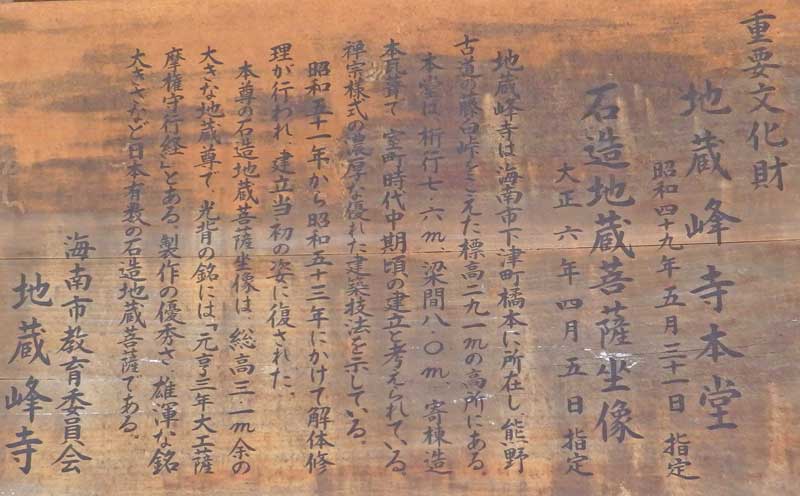 重要文化財
地蔵峰寺本堂
昭和四十九年五月二十一日 指定
石造地蔵菩薩坐像
大正六年四月五日指定
地蔵峰寺は海南市下津町橘本に所在し、熊野
古道の藤白峠をこえた標高二九一mの高所にある。
本堂は、桁行七・六m、梁間八・〇m、寄棟造
本瓦葺で、室町時代中期頃の建立と考えられている。
禅宗様式の濃厚な優れた建築技法を示している。
昭和五十一年から昭和五十三年にかけて解体修
理が行われ、建立当初の姿に復された。
本尊の石造地蔵菩薩坐像は、総高三・一m余の
大きな地蔵尊で、光背の銘には「元亨三年大工薩
摩権守行経」とある。製作の優秀さ、雄渾な銘
大きさなど日本有数の石造地蔵菩薩である。
海南市教育委員会
地蔵峰寺